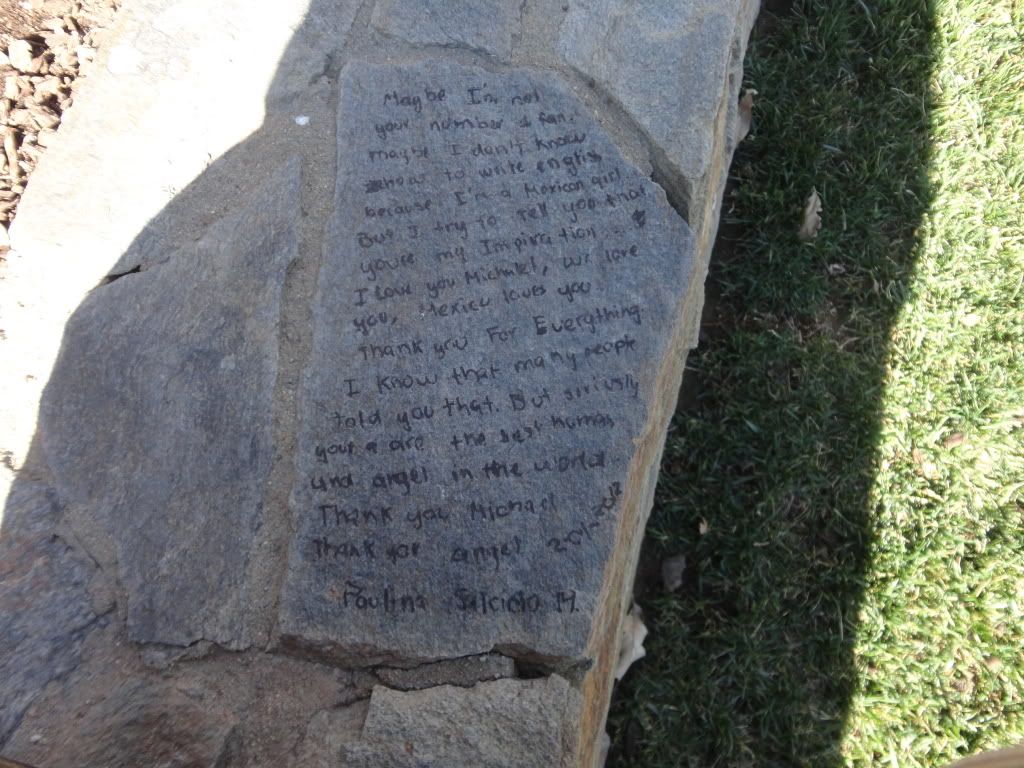 Maybe I'm not
your number 1 fan.
maybe I don't know
how to write english
because I'm a Mexican girl
But I try to tell you that
you're my Inspiration...
I love you Michael, we love
you, Mexico loves you.
Thank you For Everything.
I know that many people
told you that. But siriusly
your are the best human
and angel in the world
Thank you Michael
Thank you angel
Paulina Salcido M.